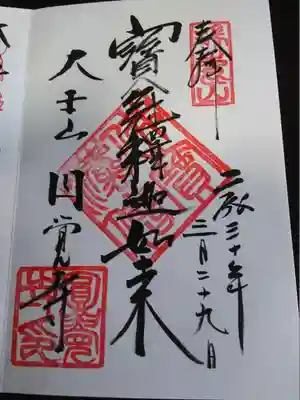 奉拝
平成三十年
三月二十九日
寳冠釋迦如来
大本山 円覚寺